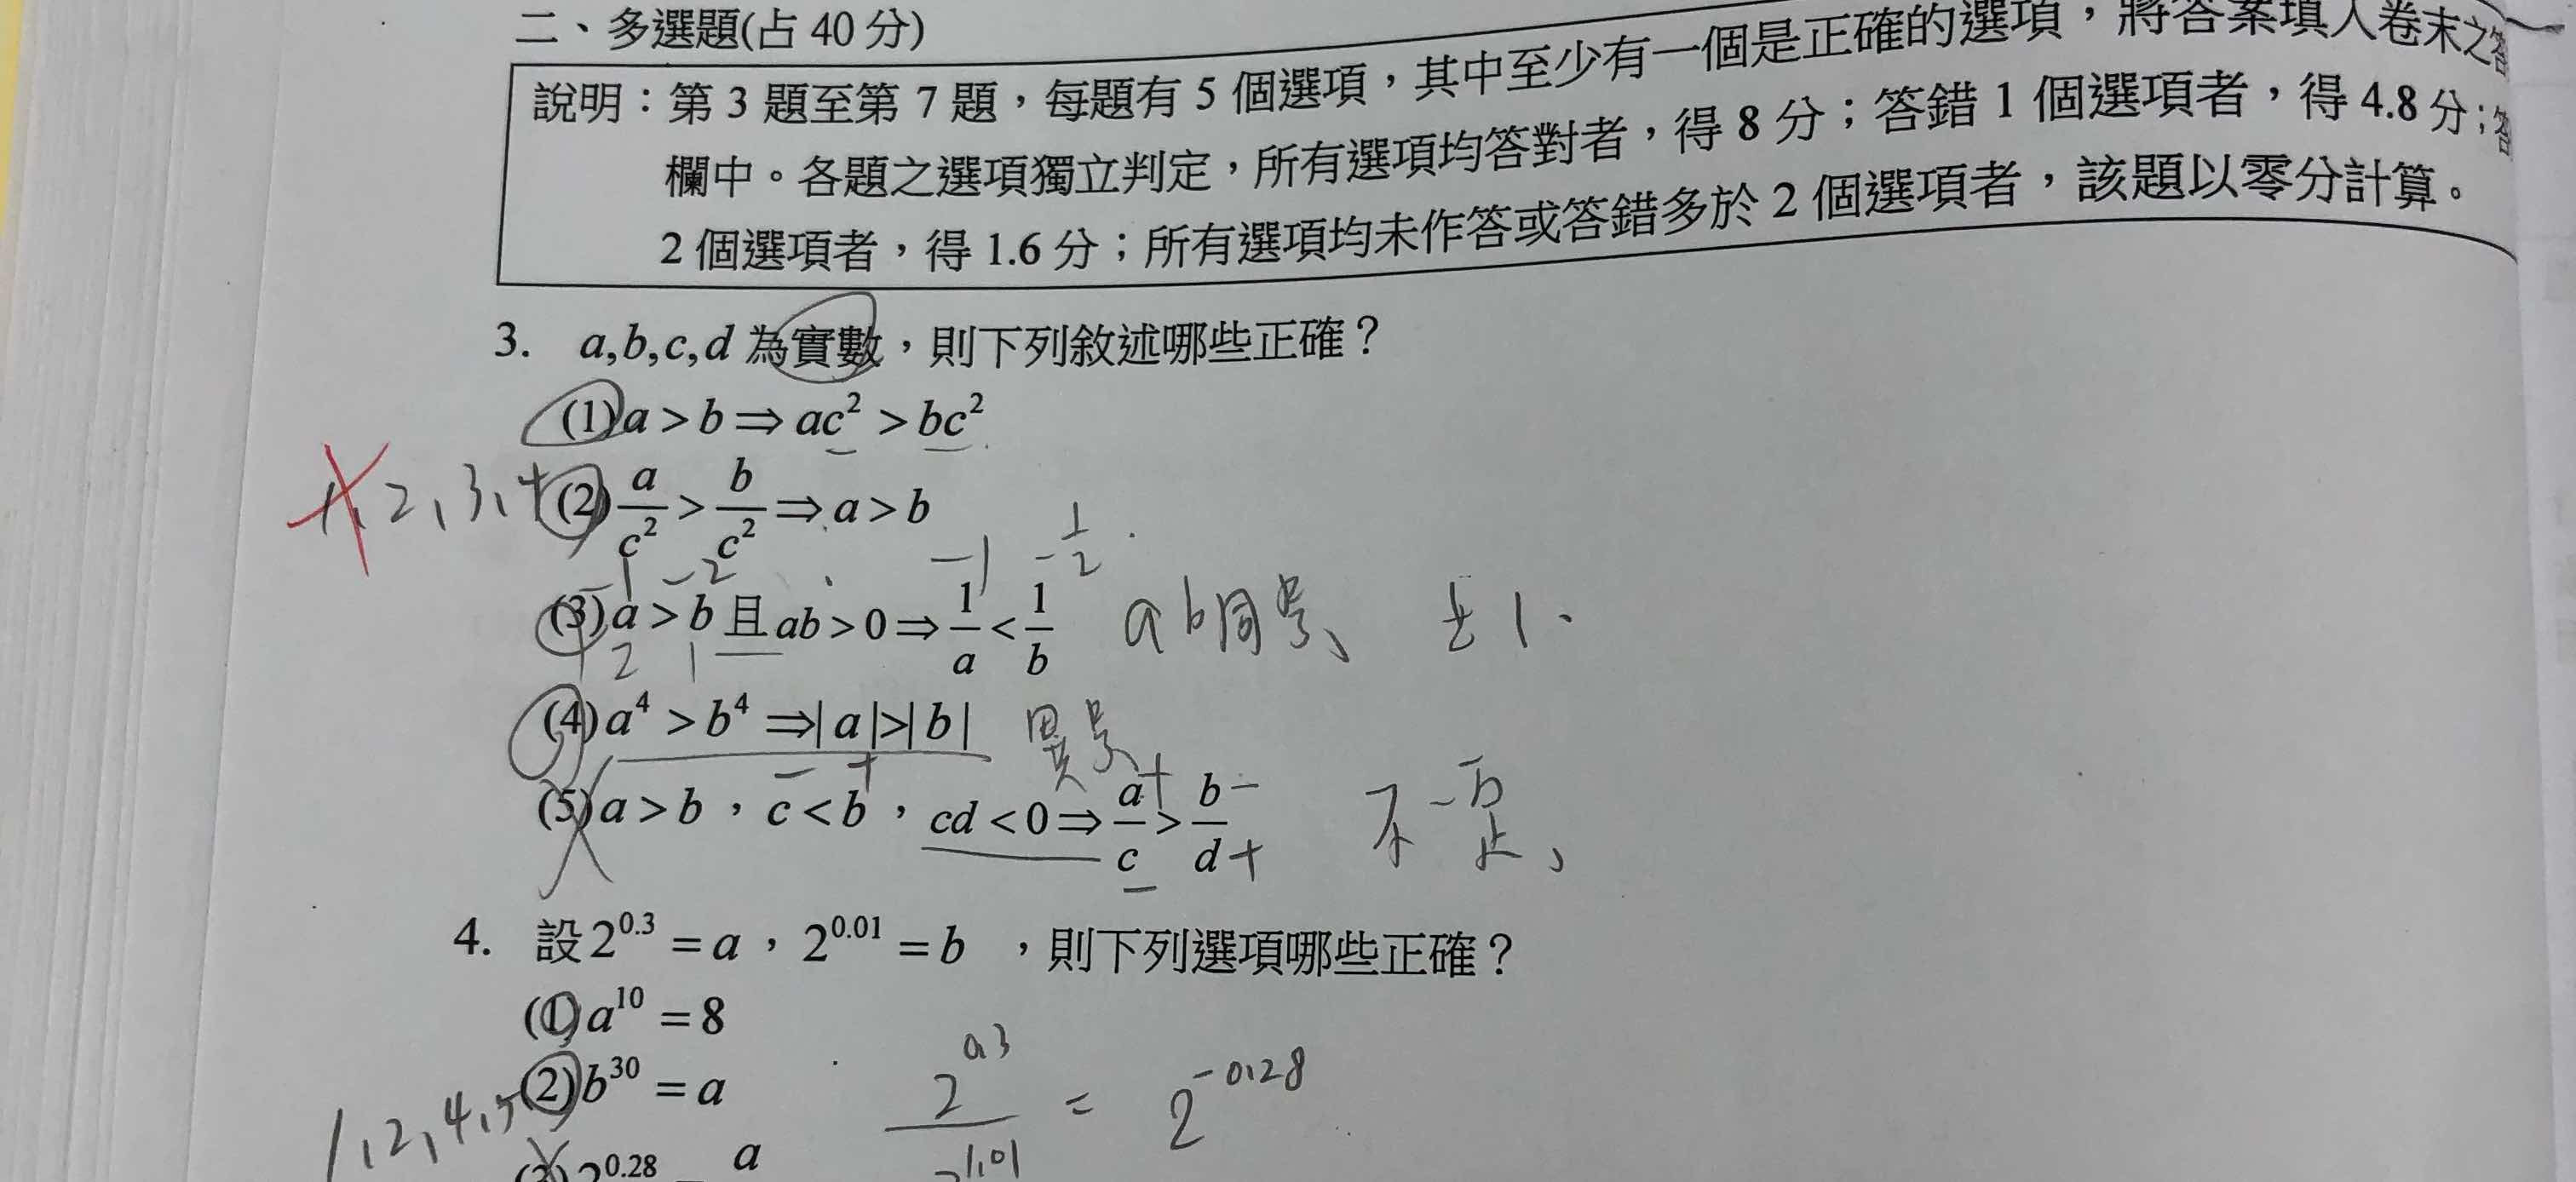 二、多選題(占 40 分)
說明：第 3 題至第 7 題，每題有 5 個選項，其中至少有一個是正確的選項，將答案填入卷末之答
欄中。各題之選項獨立判定，所有選項均答對者，得 8 分；答錯 1 個選項者，得 4.8 分；答
2 個選項者，得 1.6 分；所有選項均未作答或答錯多於 2 個選項者，該題以零分計算。
3. a,b,c,d 為實數，則下列敘述哪些正確？
(1) a > b ⇒ ac² > bc²
1,2,3,4
(2) a/c² > b/c² ⇒ a > b
-1 -2 -1 -1/2
(3) a > b 且 ab > 0 ⇒ 1/a < 1/b ab同號、
2 1
(4) a⁴ > b⁴ ⇒ |a|>|b| 異號
- + + -
(5) a > b，c < b，cd < 0 ⇒ a/c > b/d 不一定、
- +
4. 設 2^0.3 = a，2^0.01 = b ，則下列選項哪些正確？
(1) a¹⁰ = 8
(2) b³⁰ = a
1,2,4,5
= 2^-0.28
(3) 2^0.28 = a